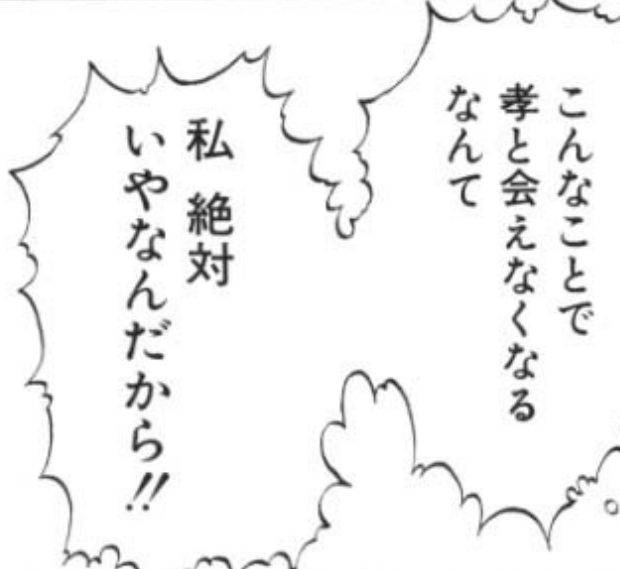 こんなことで
孝と会えなくなる
なんて
私 絶対
いやなんだから!!